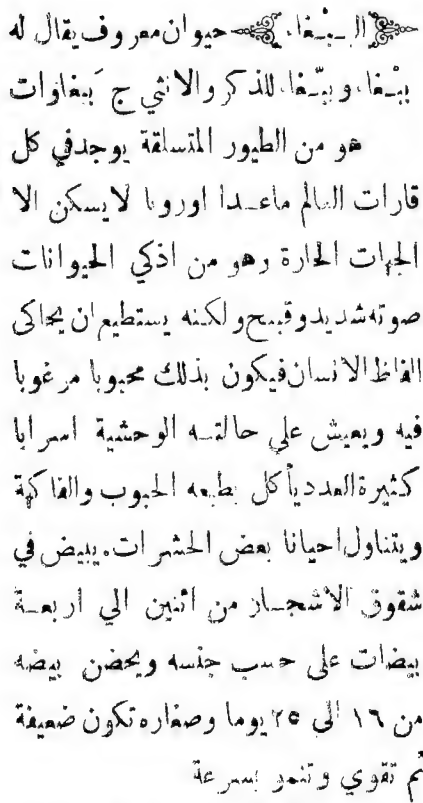 ﴿ الببغاء ﴾ حيوان معروف يقال له
ببْغاء وببّغاء للذكر والانثي ج بَبغاوات
هو من الطيور المتسلقة يوجد في كل
قارات العالم ماعدا اوروبا لا يسكن الا
الجهات الحارة وهو من اذكي الحيوانات
صوته شديد وقبيح ولكنه يستطيع ان يحاكى
الفاظ الانسان فيكون بذلك محبوبا مرغوبا
فيه ويعيش علي حالته الوحشية اسرابا
كثيرة العدد يأكل بطبعه الحبوب والفاكهة
ويتناول احيانا بعض الحشرات. يبيض في
شقوق الاشجار من اثنين الي اربعة
بيضات على حسب جنسه ويحضن بيضه
من ١٦ الى ٢٥ يوما وصغاره تكون ضعيفة
ثم تقوي وتنمو بسرعة